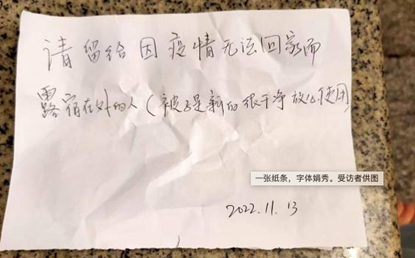 请留给因疫情无法回家而
露宿在外的人（被子是新的很干净放心使用
一张纸条，字体娟秀。受访者供图
2022.11.13